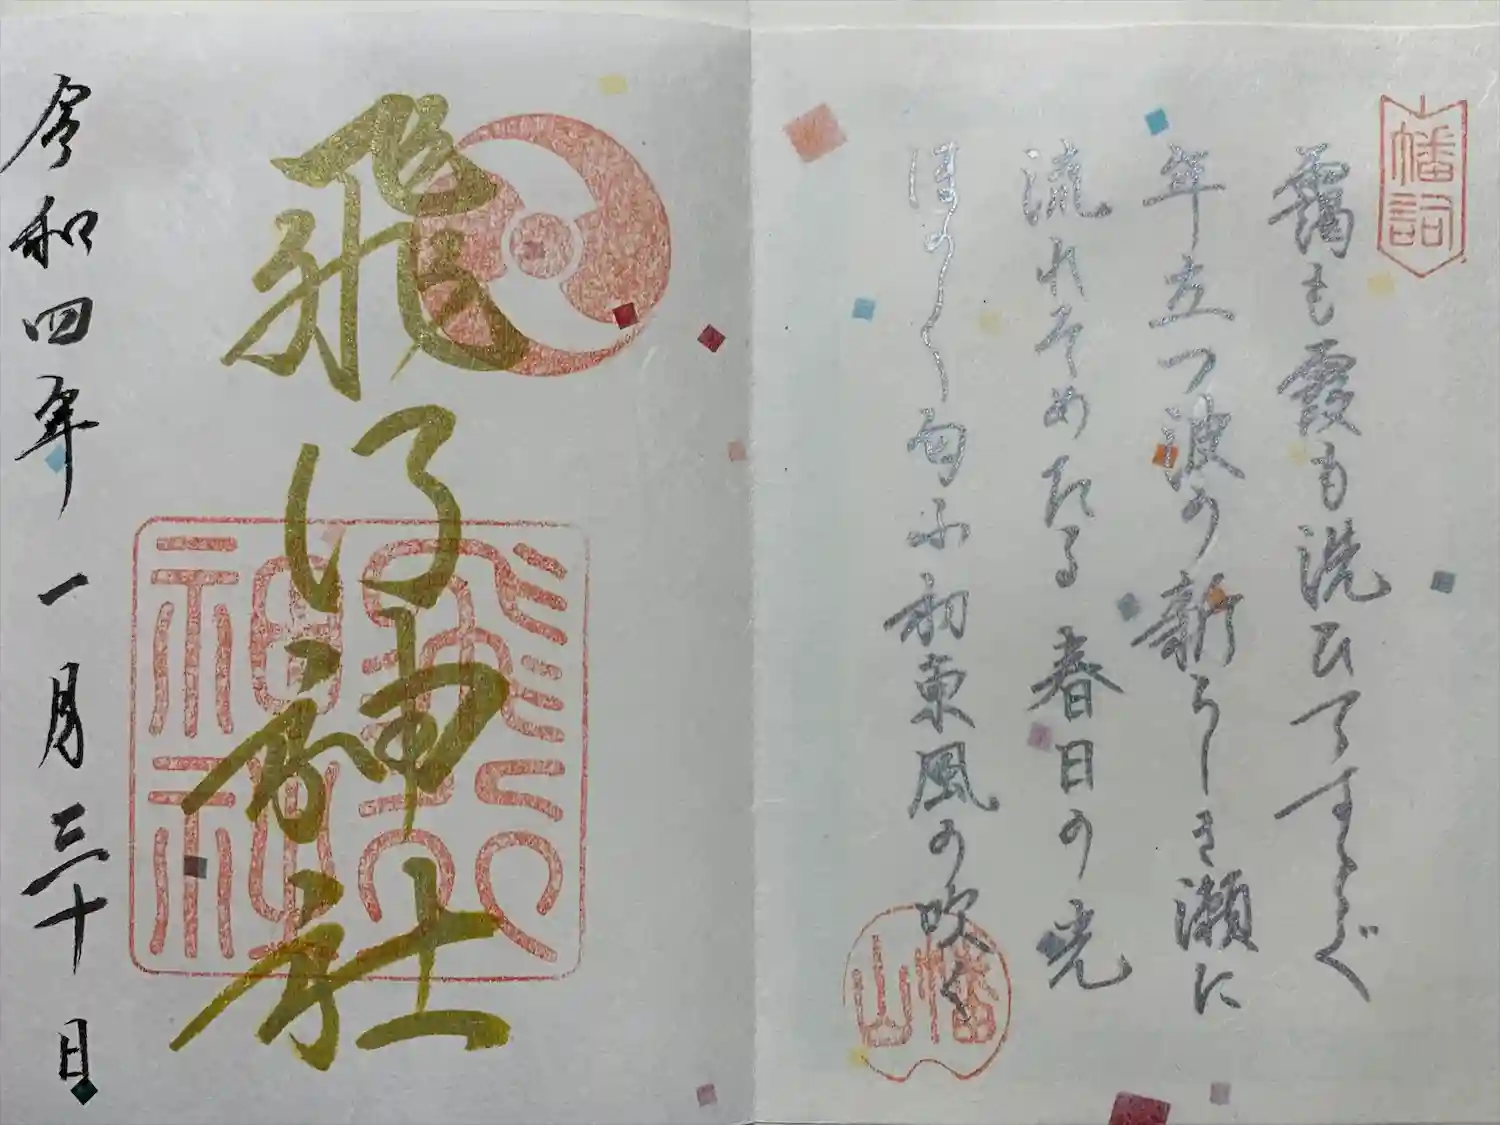 幡詞
靄も霞も洗ひてすゝぐ
年立つ波の新らしき瀬に
流れそめたる春日の光
ほの〱匂ふ初東風の吹く
山幡
飛行神社
令和四年一月三十日